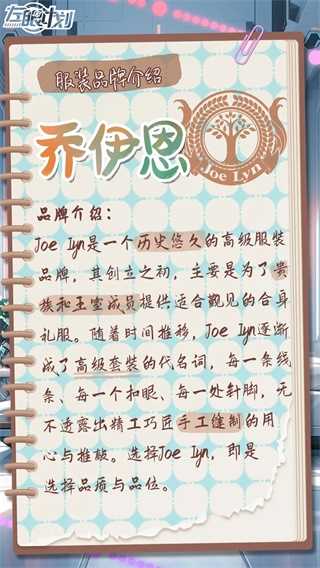 左眼计划
服装品牌介绍
乔伊恩
Joe Lyn
品牌介绍:
Joe lyn是一个历史悠久的高级服装
品牌,其创立之初,主要是为了贵
族和王室成员提供适合觐见的合身
礼服。随着时间推移,Joe lyn逐渐
成了高级套装的代名词,每一条线
条、每一个扣眼、每一处针脚,无
不透露出精工巧匠手工缝制的用
心与推敲。选择Joe lyn,即是
选择品质与品位。